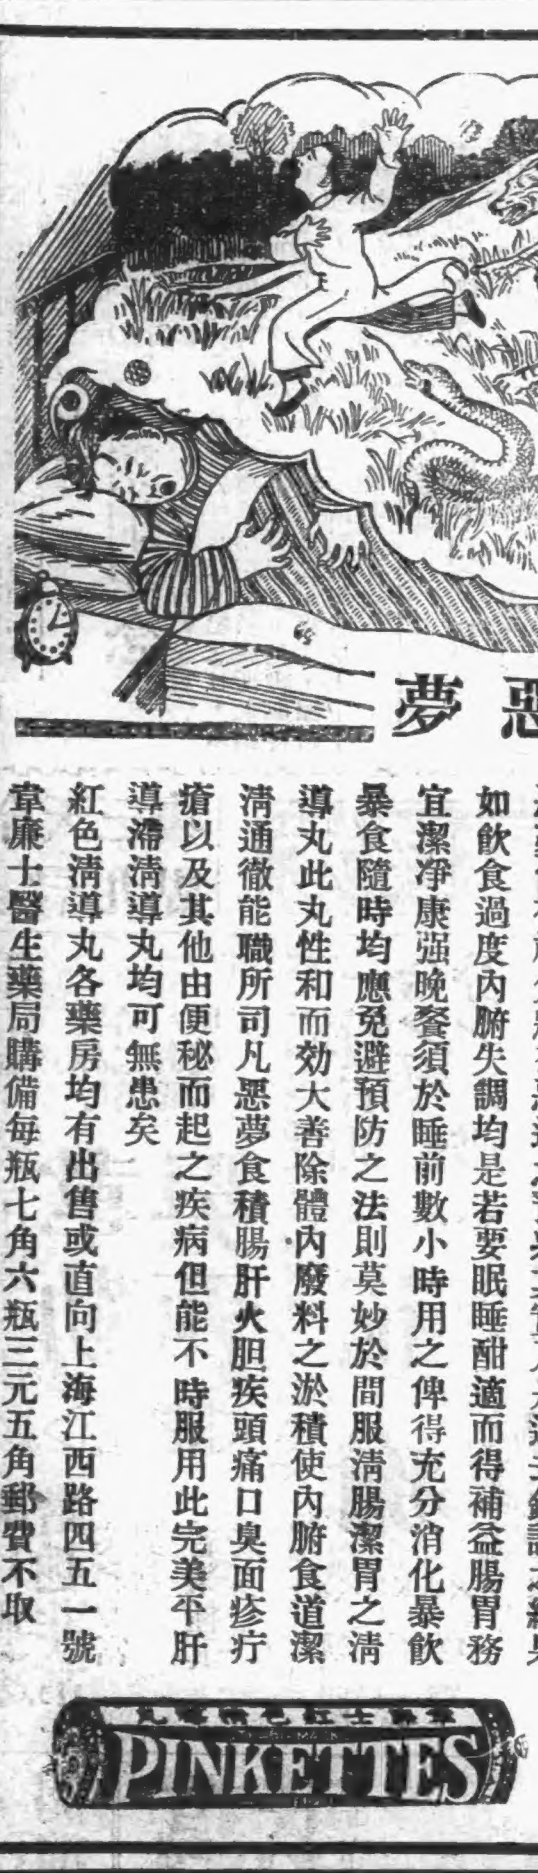 惡夢
如飲食過度內腑失調均是若要眠睡酣適而得補益腸胃務
宜潔凈康强晚餐須於睡前數小時用之俾得充分消化暴飲
暴食隨時均應免避預防之法則莫妙於間服淸腸潔胃之淸
導丸此丸性和而効大善除體內廢料之淤積使內腑食道潔
淸通徹能職所司凡惡夢食積腸肝火胆疾頭痛口臭面疹疔
瘡以及其他由便秘而起之疾病但能不時服用此完美平肝
導滯淸導丸均可無患矣
紅色淸導丸各藥房均有出售或直向上海江西路四五一號
韋廉士醫生藥局購備每瓶七角六瓶三元五角郵費不取
PINKETTES